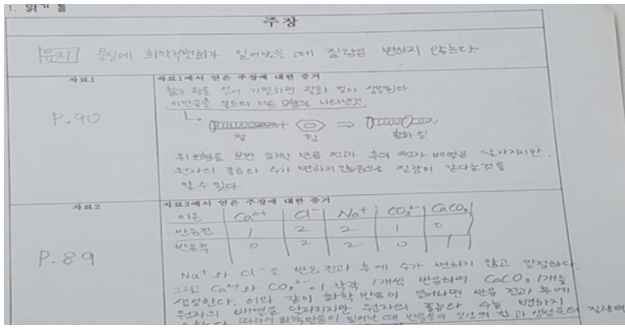 1. 읽기 틀
주장
뮤지 물질에 화학적변화가 일어났을 때 질량은 변하지 않는다
자료1
자료1에서 얻은 주장에 대한 증거
P.90
철과 황을 섞어 가열하면 황화 철이 생성된다.
이반응을 볼트와 너트 모형으로 나타낸것
+ ⇒
철 황 황화 철
위모형을 보면 화학 반응 전과 후의 원자 배열은 달라지지만,
원자의 종류와 수가 변하지 않음으로 질량이 같다는것을
알 수 있다.
자료2
자료2에서 얻은 주장에 대한 증거
P.89
이온 Ca²⁺ Cl⁻ Na⁺ CO₃²⁻ CaCO₃
반응전 1 2 2 1 0
반응후 0 2 2 0 1
Na⁺와 Cl⁻은 반응 전과 후에 수가 변하지 않고 일정하다.
그리고 Ca²⁺와 CO₃²⁻이 각각 1개씩 반응하여 CaCO₃ 1개를
생성한다. 이와 같이 화학 반응이 일어나면 반응 전과 후에
원자의 배열은 달라지지만 원자의 종류와 수는 변하지
않는다. 따라서 화학반응이 일어날 때 반응물의 질량의 합과 생성물의 질량의